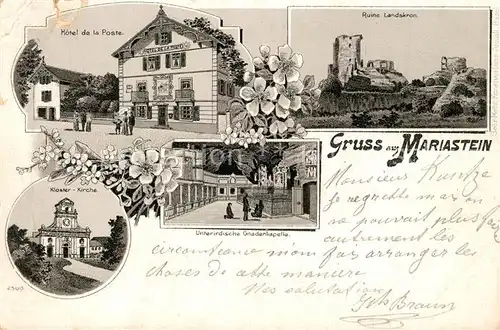 Hôtel de la Poste.
HÔTEL DE LA POSTE
Ruine Landskron.
Gruss aus MARIASTEIN
Kloster-Kirche.
Unterirdische Gnadenkapelle.
Monsieur Kuntze
je regrette mas on
ne pouvait plus faire
autrement les
circomtance mom far arranger les
choses de cette maniere
Mes salutation
Braun